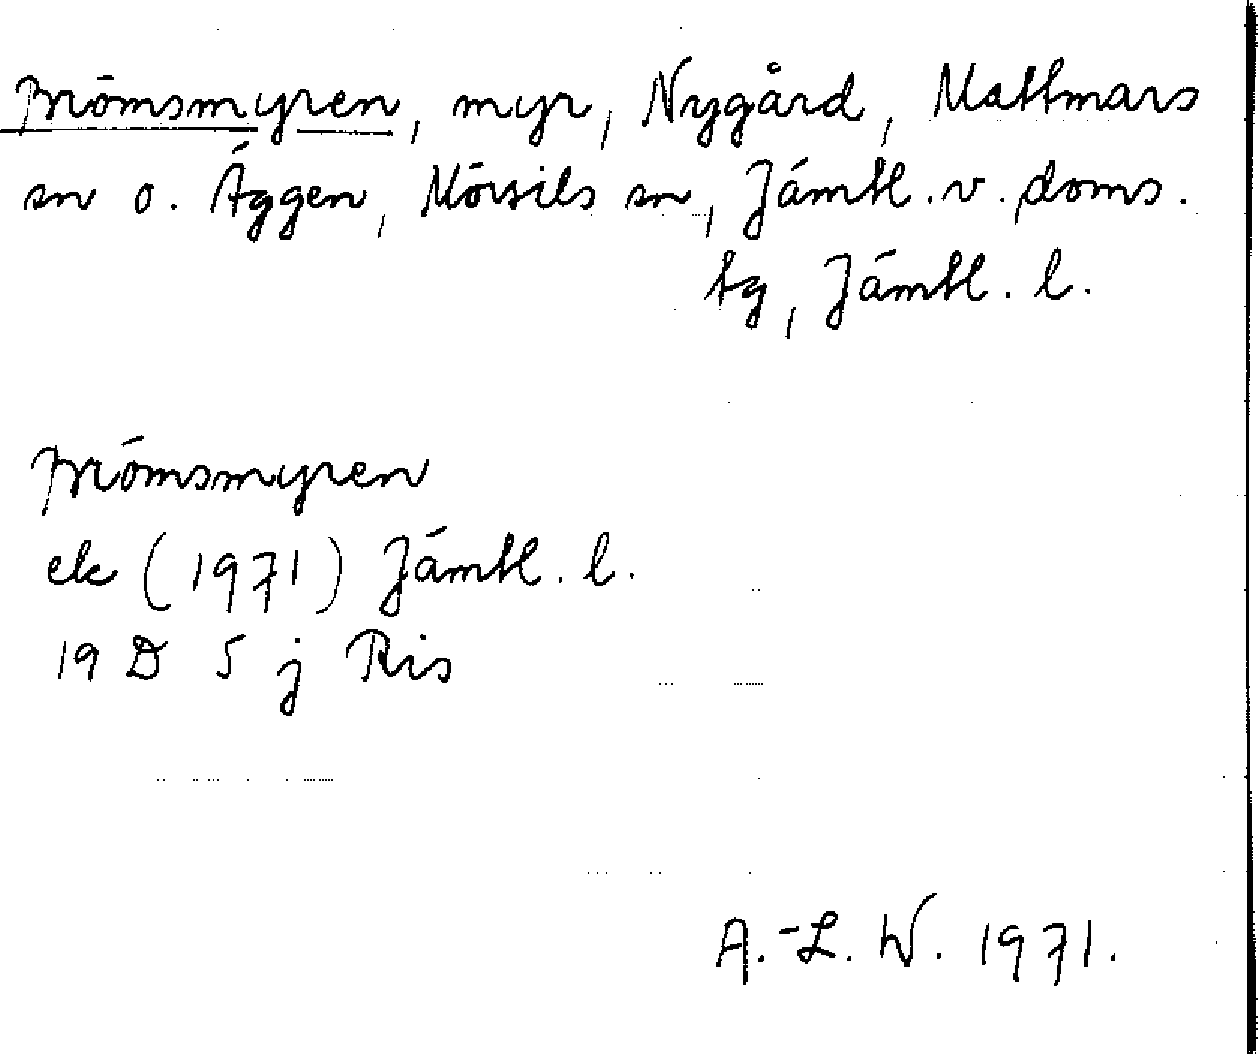 Brömsmyren, myr, Nygård, Mattmars
sn o. Äggen, Mörsils sn, Jämtl. v. doms.
tg, Jämtl. l.
Brömsmyren
ek (1971) Jämtl. l.
19 D 5 j Ris
A.-L. W. 1971.